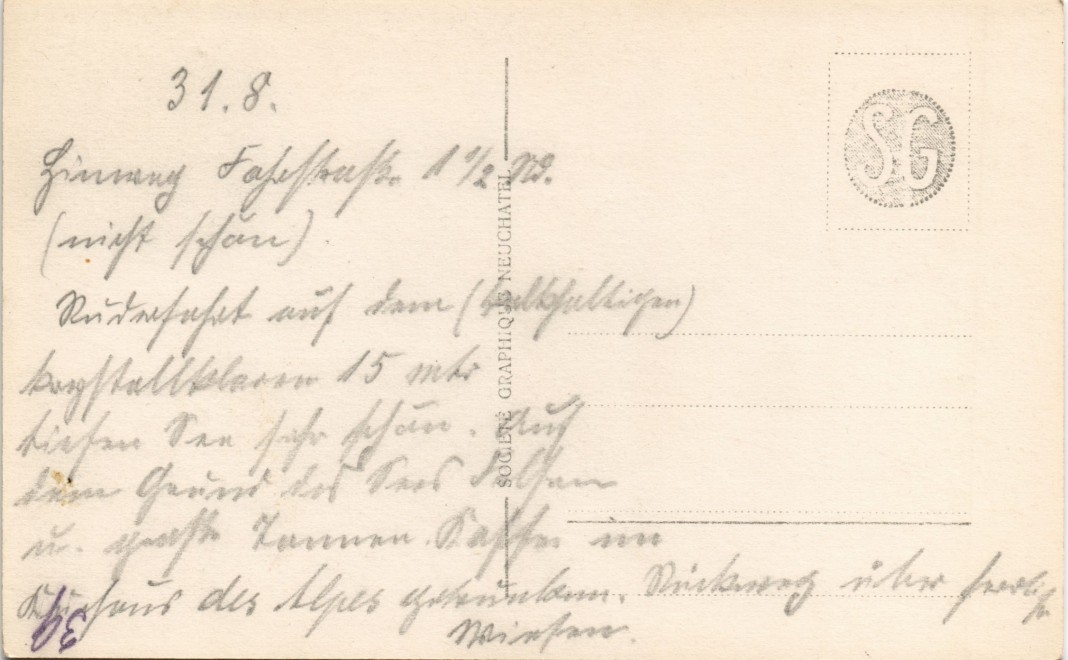 31.8.
Hinweg Fahrstraße 1 1/2 Std.
(nicht schön).
Ruderfahrt auf dem (kalkhaltigen)
krystallklaren 15 mtr
tiefen See sehr schön. Auf
dem Grund des Sees Felsen
u. große Tannen. Kaffee im
Kurhaus des Alpes getrunken. Rückweg über herrliche
Wiesen.
SOCIÉTÉ GRAPHIQUE NEUCHATEL
SG